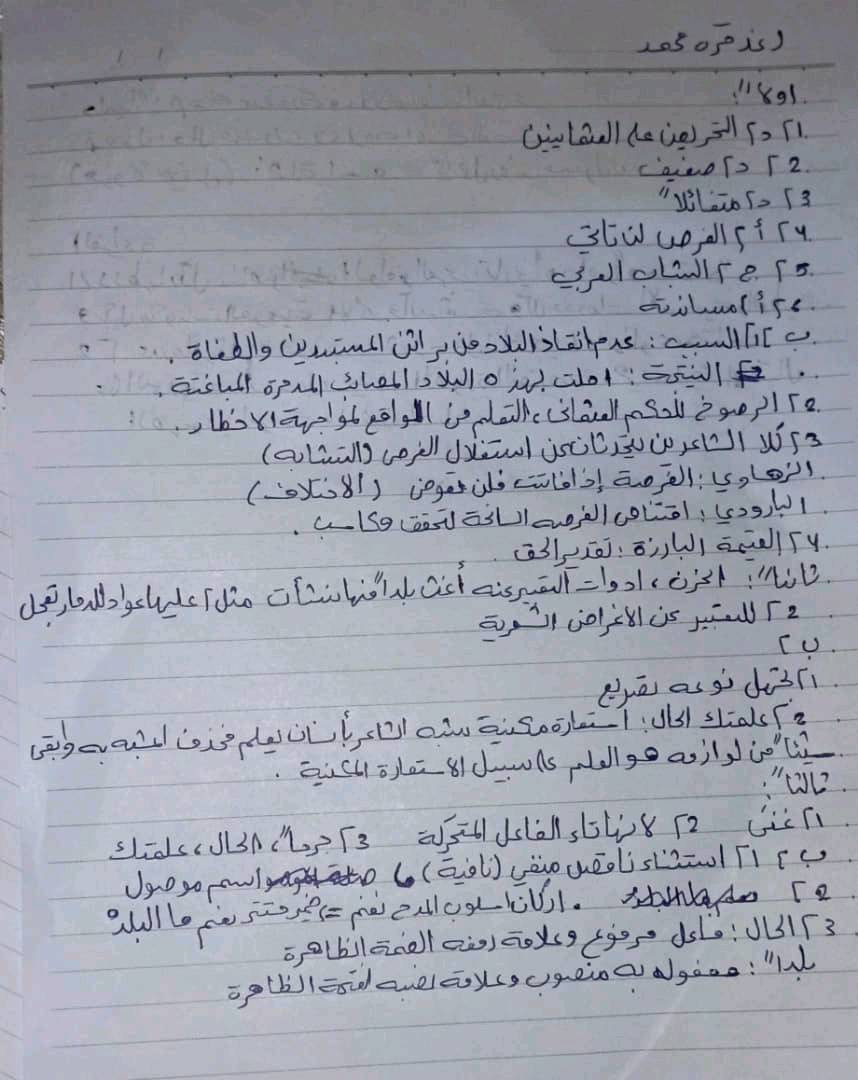 رغد قره محمد
اولا":
٢١ د٢ التحريض على العثمانيين
٢2 د٢ ضعيف
٢3 د٢ متفائلا"
٢٤ أ٢ الفرص لن تأتي
٢٥ ج٢ الشباب العربي
٢٦ أ٢ مساندته
ب٢ ١] السبب: عدم انقاذ البلاد من براثن المستبدين والطغاة.
النتيجة: احلت بهذه البلاد المصائب المدمرة المباغتة.
٢2 الرضوخ للحكم العثماني، التعلم من المواقع لمواجهة الاخطار.
٢3 كلا الشاعرين يتحدثان عن استغلال الفرص (التشابه)
الزهاوي: الفرصة إذا فاتت فلن تعوض (الاختلاف)
البارودي: اقتناص الفرصه السانحة لتحقق مكاسب.
٢٤ القيمة البارزة: تقدير الحق
ثانيا": الحزن، ادوات التعبير عنه أغث بلدا" منها نشأت مثل عليها عواد للدمار تعجل
٢2 للتعبير عن الاغراض الشعرية
ب٢
٢١ تجهل نوعه تصريع
٢2 علمتك الحال: استعارة مكنية شبه الشاعر بأنسان يعلم فحذف المشبه به وابقى
شيئا" من لوازمه هو العلم على سبيل الاستعارة المكنية.
ثالثا":
٢١ غنى ٢2 لانها تاء الفاعل المتحركة ٢3 جرحا"، الحال، علمتك
ب٢ ٢١ استثناء ناقص منفي (نافية) ما اسم موصول
٢2 اركان اسلوب المدح نعم = ضمير مستتر نعم ما البلد
٢3 الحال: فاعل مرفوع وعلامة رفعه الضمة الظاهرة
بلدا": مفعول به منصوب وعلامة نصبه الفتحة الظاهرة